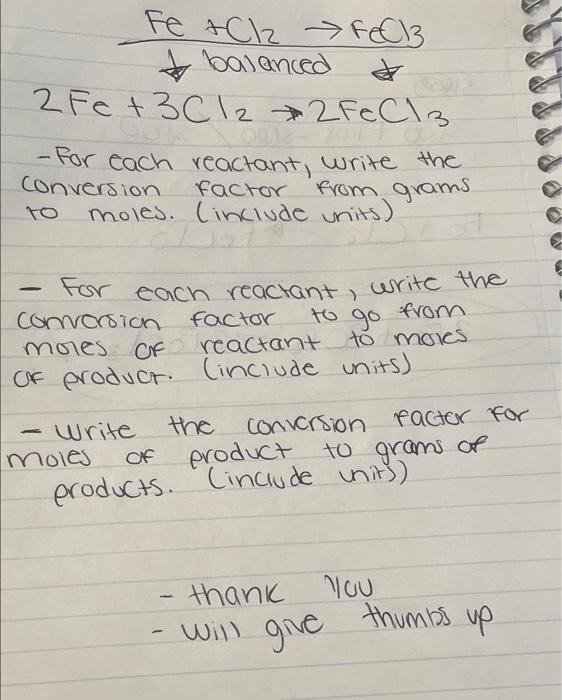 Fe + Cl2 → FeCl3
↓ balanced ↓
2Fe + 3Cl2 → 2FeCl3
- For each reactant, write the
conversion factor from grams
to moles. (include units)
- For each reactant, write the
conversion factor to go from
moles of reactant to moles
of product. (include units)
- Write the conversion factor for
moles of product to grams of
products. (include units)
- thank you
- will give thumbs up